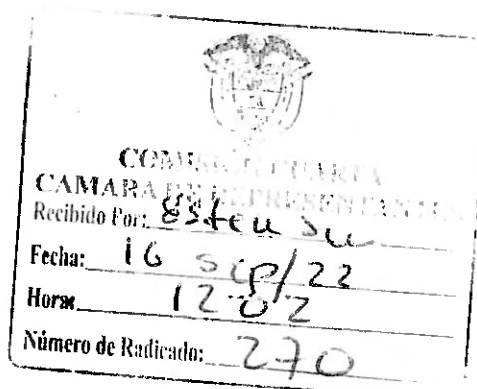 COMISIÓN CUARTA
CAMARA DE REPRESENTANTES
Recibido Por:
Fecha: 16 sep/22
Hora: 12:02
Número de Radicado: 270